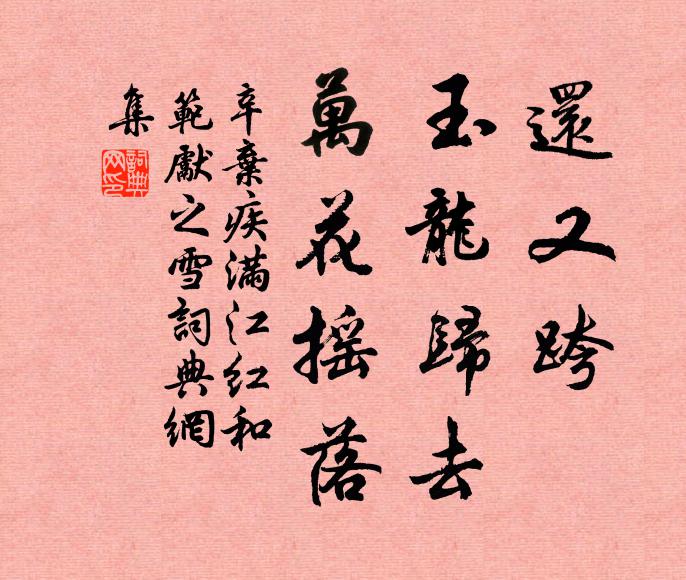 還又跨
玉龍歸去
萬花摇落
辛棄疾滿江红和
範獻之雪詞典網
集
詞典
网印